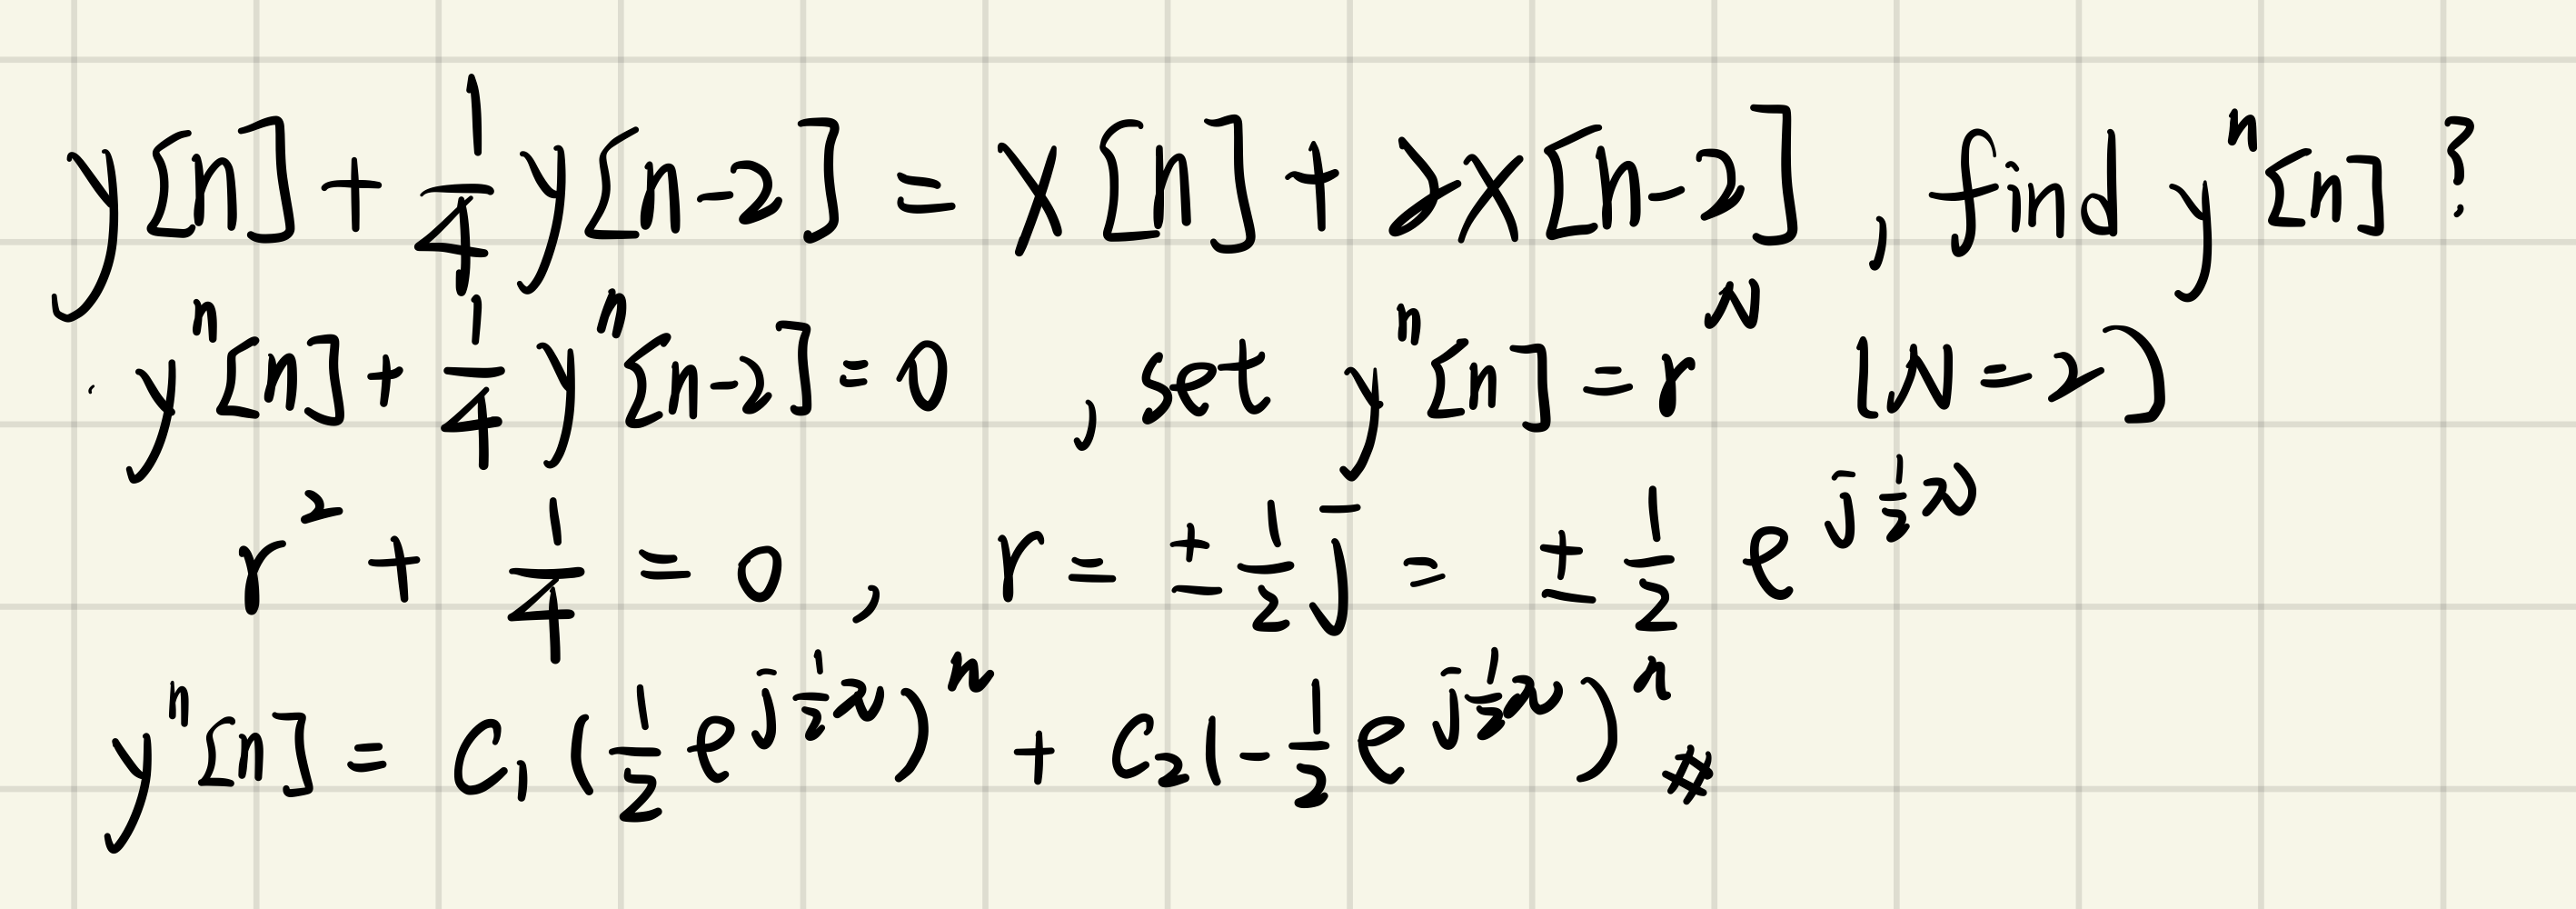 y[n] + 1/4 y[n-2] = x[n] + 2x[n-2] , find yⁿ[n] ?
yⁿ[n] + 1/4 yⁿ[n-2] = 0 , set yⁿ[n] = r^N [N=2)
r² + 1/4 = 0 , r = ± 1/2 j = ± 1/2 e^(j 1/2 π)
yⁿ[n] = C₁ (1/2 e^(j 1/2 π))ⁿ + C₂ (-1/2 e^(j 1/2 π))ⁿ #